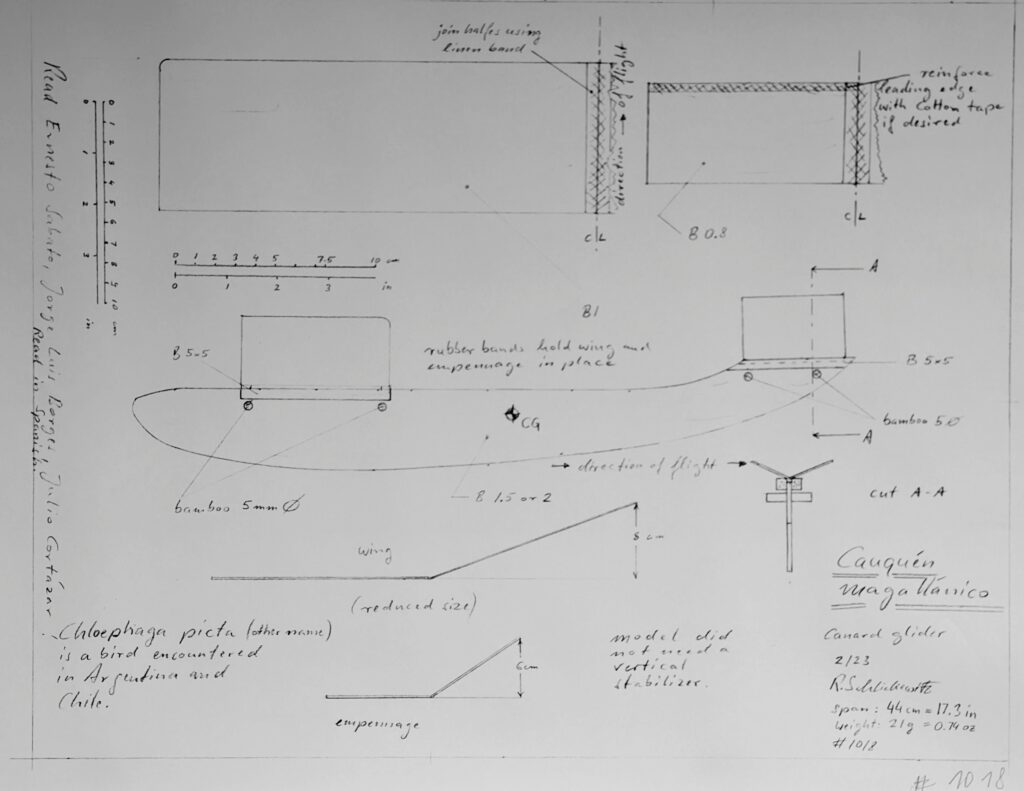 join halfes using
linen band
direction → of flight
reinforce
leading edge
with cotton tape
if desired
C L
C L
B 0.8
B 1
Read Ernesto Sabato, Jorge Luis Borges, Julio Cortázar.
Read in Spanish.
0 1 2 3 4 5 6 7 8 9 10 cm
0 1 2 3 in
0 1 2 3 4 5 7.5 10 cm
0 1 2 3 in
A
B 5x5
rubber bands hold wing and
empennage in place
B 5x5
CG
bamboo 5 Ø
A
→ direction of flight →
bamboo 5 mm Ø
B 1.5 or 2
cut A-A
wing
8 cm
(reduced size)
Cauquén
magallánico
Chloephaga picta (other name)
is a bird encountered
in Argentina and
Chile.
6 cm
empennage
model did
not need a
vertical
stabilizer.
Canard glider
2/23
span: 44 cm = 17.3 in
weight: 21g = 0.74 oz
#1018
# 1018